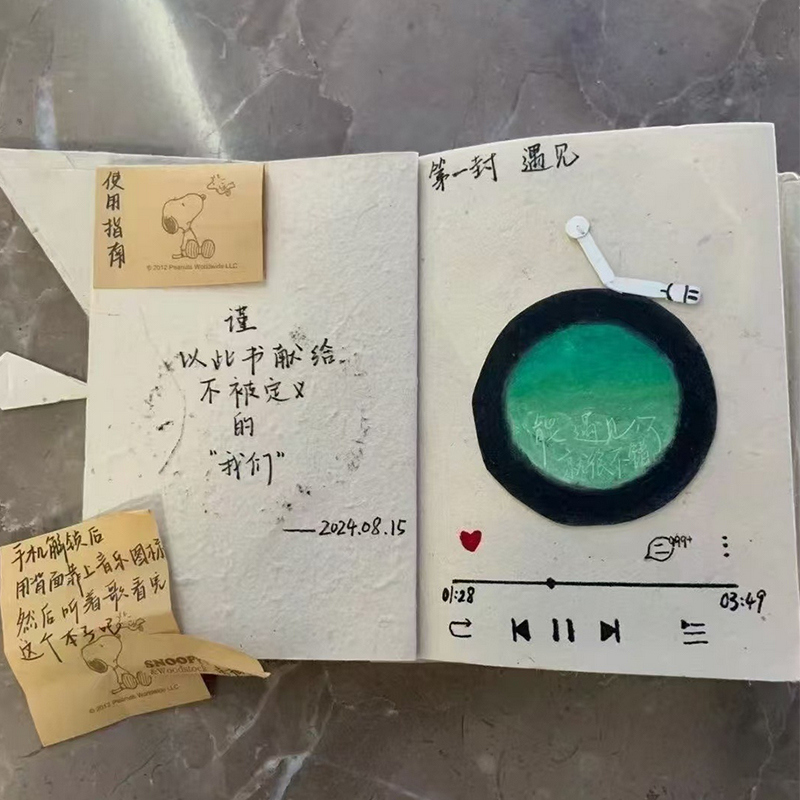 使用指南
© 2012 Peanuts Worldwide LLC
谨
以此书献给
不被定义
的
“我们”
——2024.08.15
手机解锁后
用背面靠上音乐图标
然后听着歌看完
这个本子吧
SNOOPY
&Woodstock
© 2012 Peanuts Worldwide LLC
第一封 遇见
能遇见你
就很不错
999+
01:28
03:49